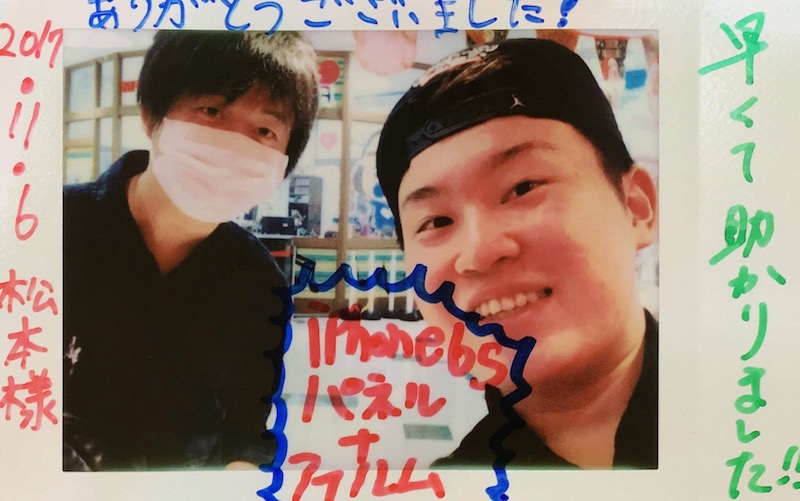 ありがとうございました!
2017.11.6 松本様
早くて助かりました!!
iPhone6s
パネル
+
フィルム